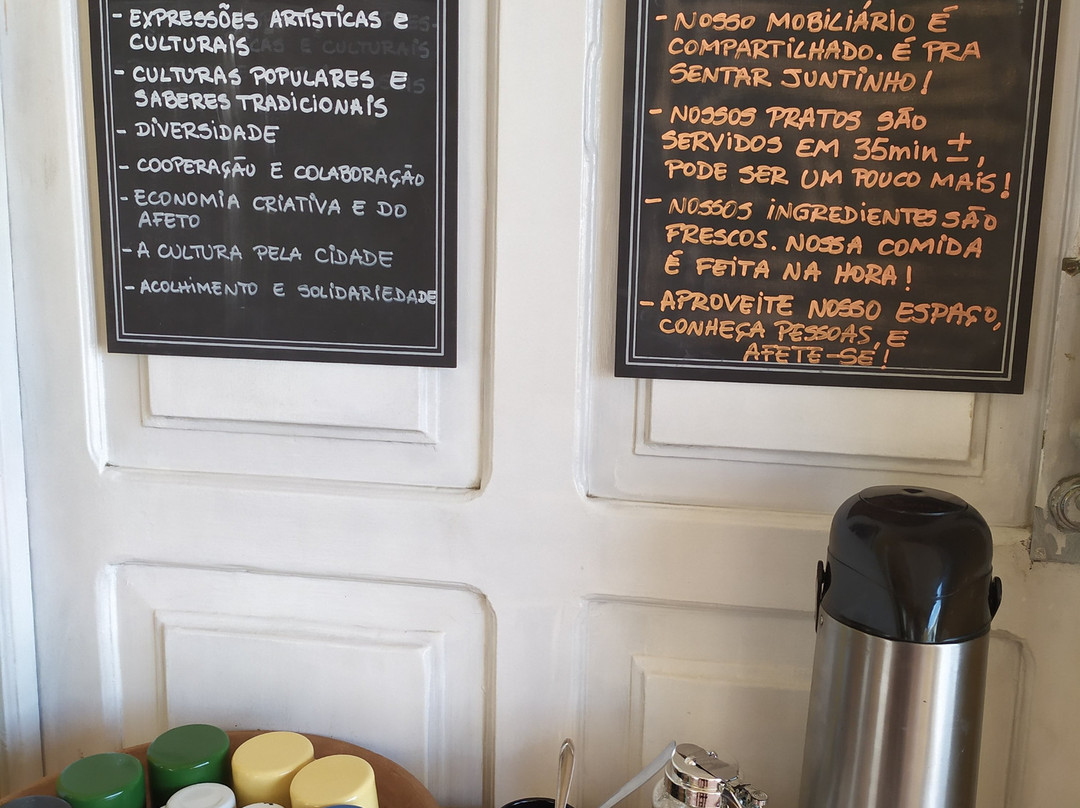 - EXPRESSÕES ARTÍSTICAS E
CULTURAIS
- CULTURAS POPULARES E
SABERES TRADICIONAIS
- DIVERSIDADE
- COOPERAÇÃO E COLABORAÇÃO
- ECONOMIA CRIATIVA E DO
AFETO
- A CULTURA PELA CIDADE
- ACOLHIMENTO E SOLIDARIEDADE
- NOSSO MOBILIÁRIO É
COMPARTILHADO. É PRA
SENTAR JUNTINHO!
- NOSSOS PRATOS SÃO
SERVIDOS EM 35min ±,
PODE SER UM POUCO MAIS!
- NOSSOS INGREDIENTES SÃO
FRESCOS. NOSSA COMIDA
É FEITA NA HORA!
- APROVEITE NOSSO ESPAÇO,
CONHEÇA PESSOAS, E
AFETE-SE!